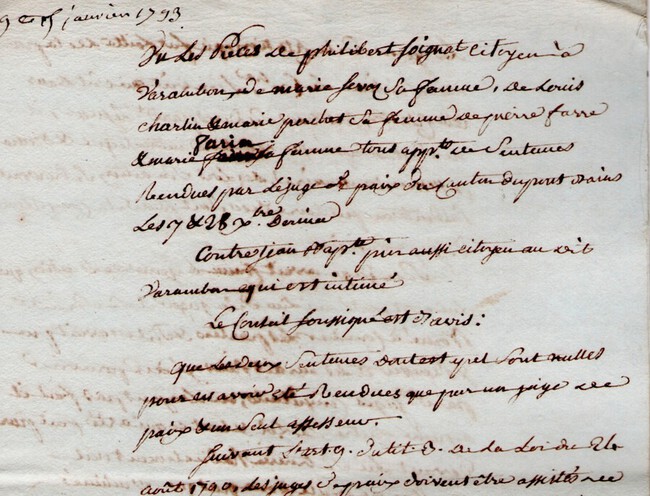 janvier 1793
Vu Les Pièces de philibert Soignat Citoyen à
Varambon & de marie Sevoz Sa femme, de Louis
charlin & marie perchet Sa femme de pierre farre
& marie Paria Sa femme tous app.ts de Sentences
Rendues par Le juge de paix du Canton du pont d'ains
Les 7 & 28 x.bre Dernier
Contre jean Bap.te pin aussi citoyen au dit
Varambon qui est intimé
Le Conseil Soussigné est d'avis :
que Les deux Sentences dont est apel Sont nulles
pour n'avoir été Rendues que par un juge de
paix & un Seul assesseur.
Suivant L'art. 9. du tit. 3. de La Loi du 24
août 1790, Les juges de paix doivent être assistés de